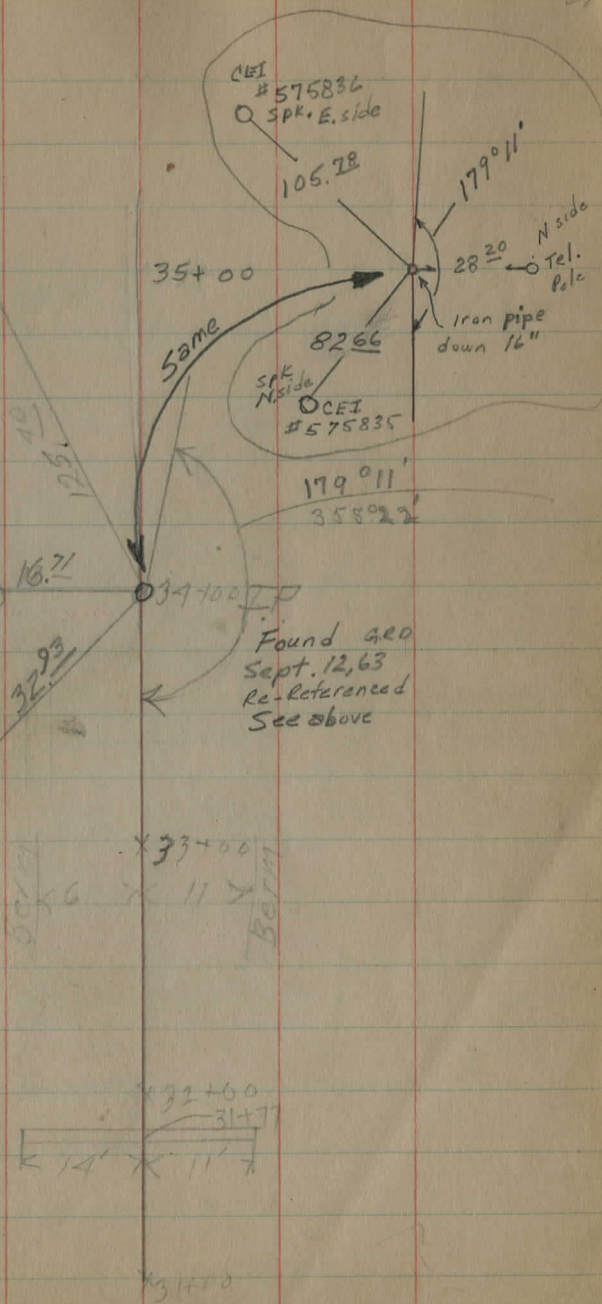 CEI
#575836
Spk. E. side
105.78
179°11'
N side
28 20
Tel.
Pole
Iron pipe
down 16"
35+00
Same
82 66
Spk
N. side
CEI
#575835
125. 40
179°11'
358°22'
16.71
34+00 IP
32.93
Found GRD
Sept. 12, 63
Re-Referenced
See above
33+00
6 11
Berm
Berm
32+00
31+77
14' 11'
31+00